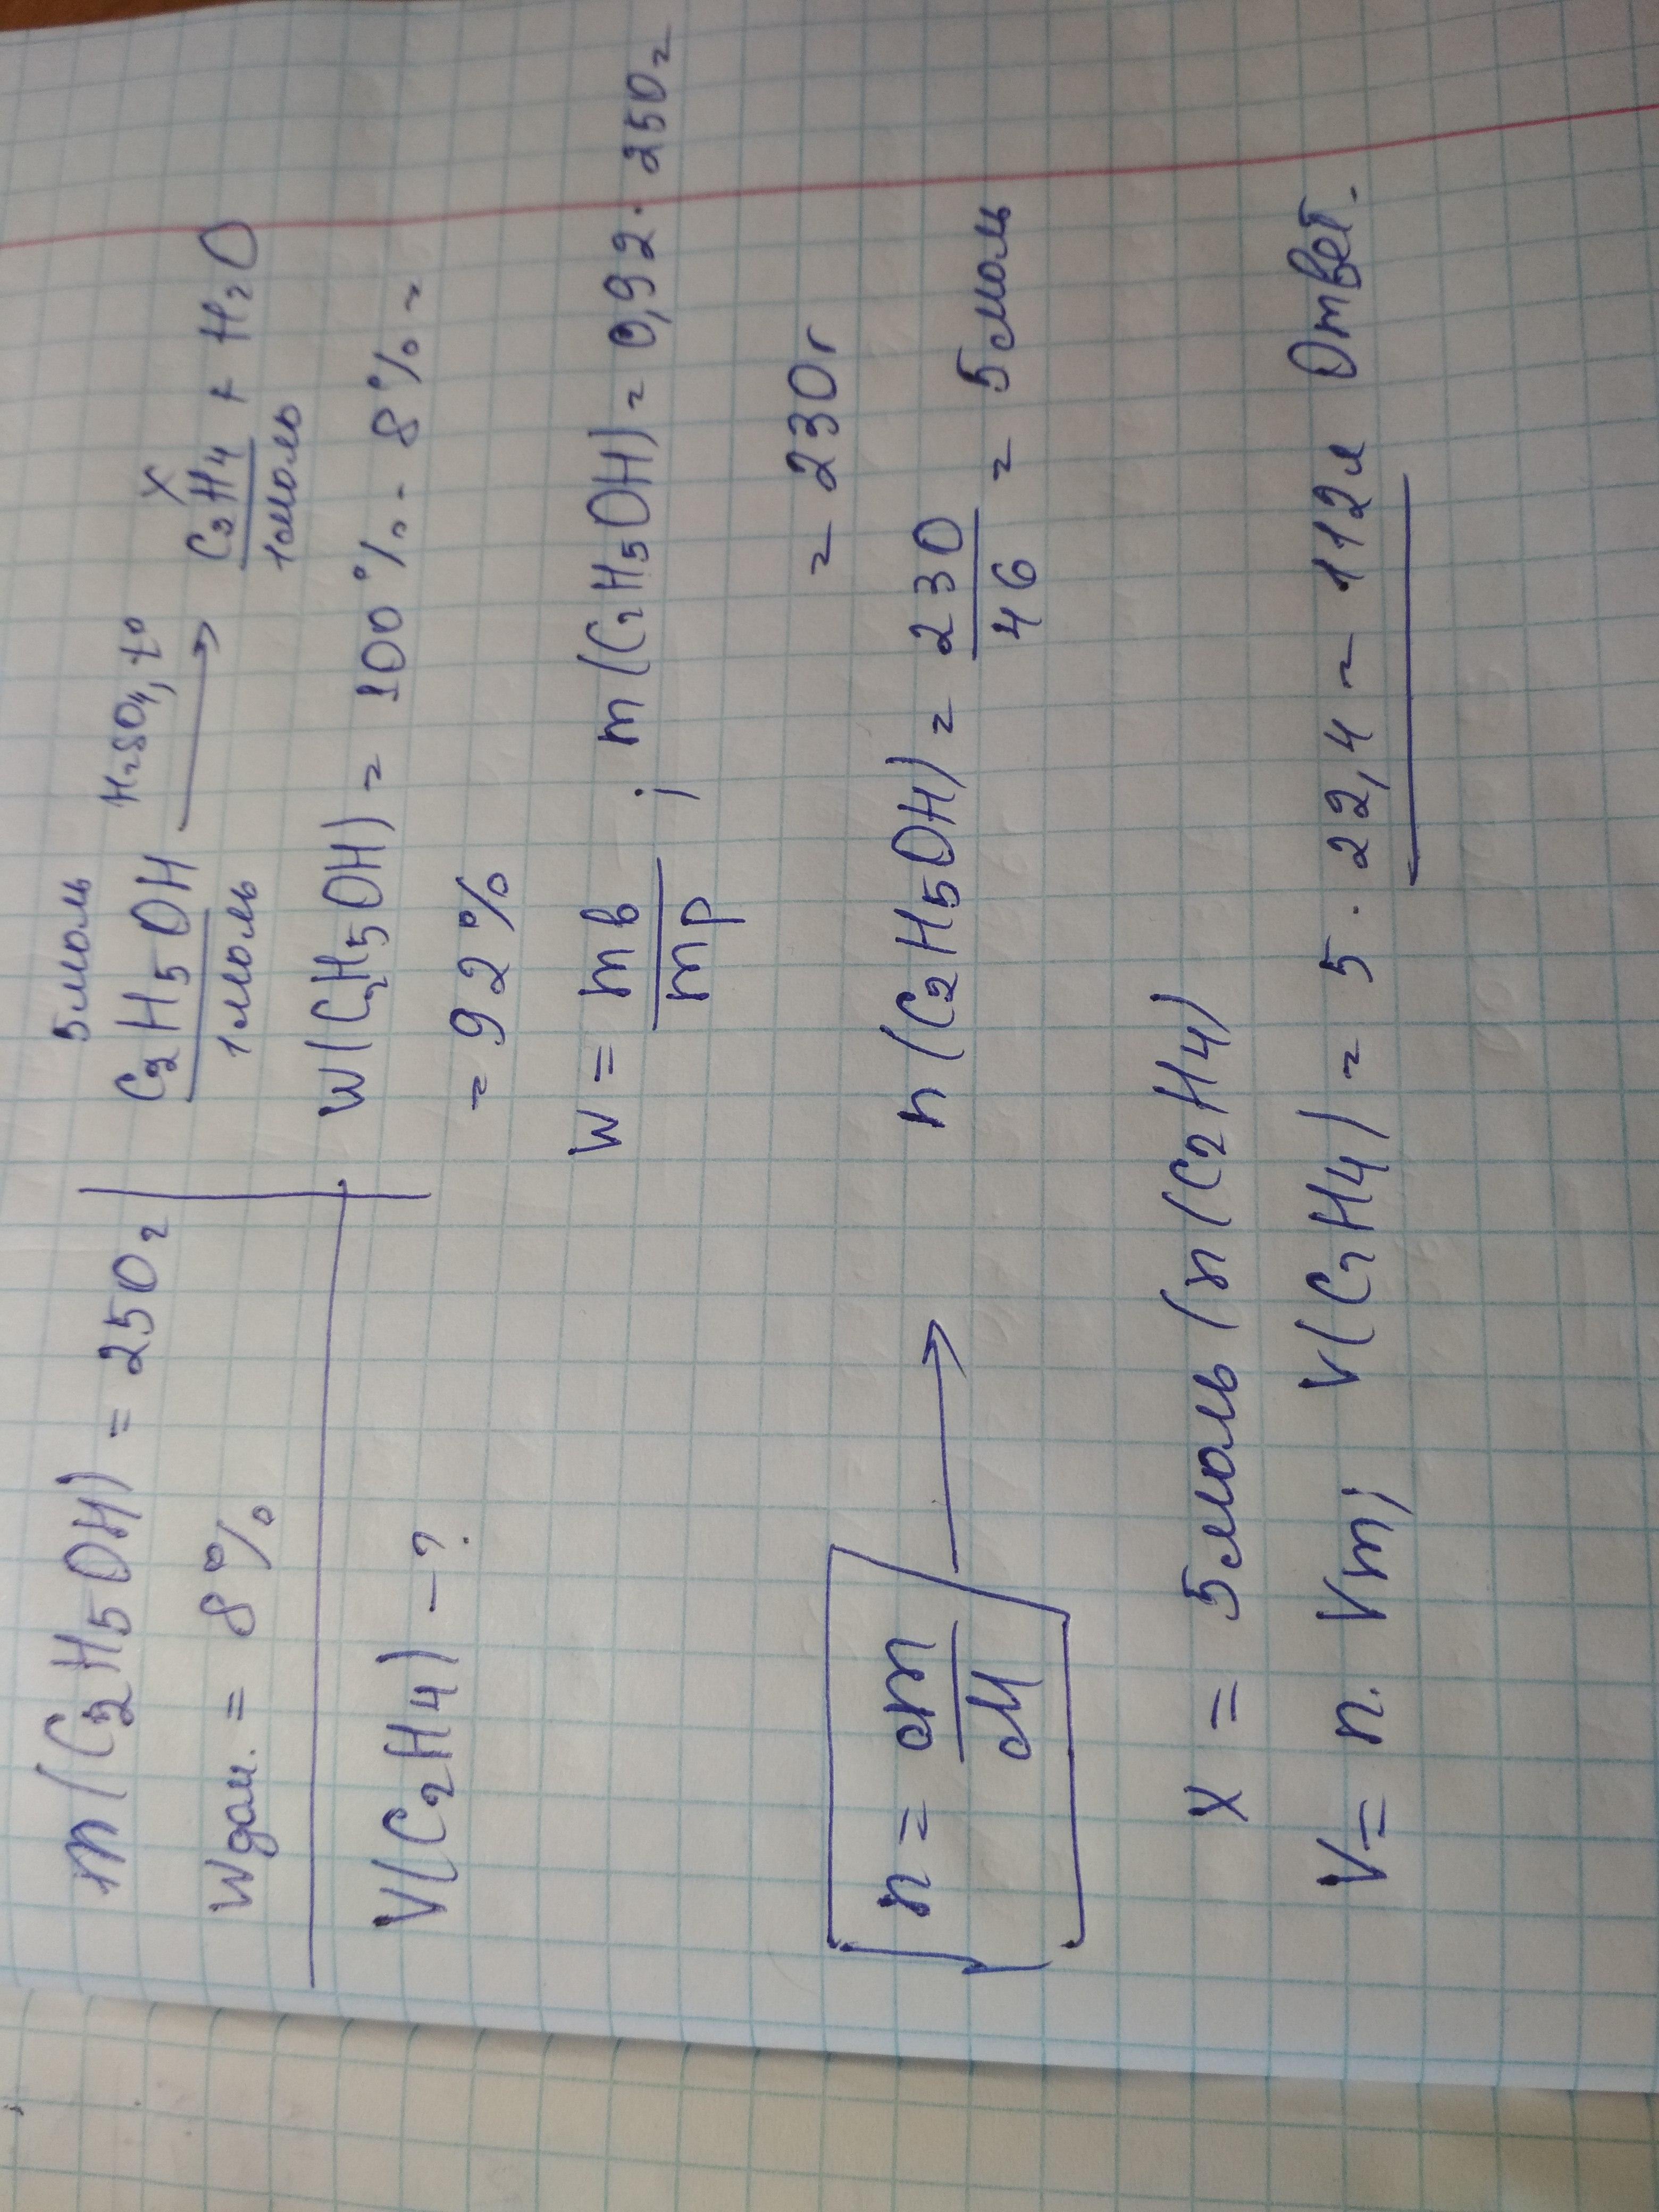 m(C₂H₅OH) = 250г
Wдом. = 8%
V(C₂H₄) – ?
5моль H₂SO₄, t° x
C₂H₅OH ⟶ C₂H₄ + H₂O
1моль 1моль
W(C₂H₅OH) = 100% - 8% =
= 92%
W = mв/mр ; m(C₂H₅OH) = 0,92 · 250г
= 230г
n = m/M ⟶ n(C₂H₅OH) = 230/46 = 5моль
x = 5моль (n(C₂H₄)
V = n · Vm; V(C₂H₄) = 5 · 22,4 = 112л Ответ.